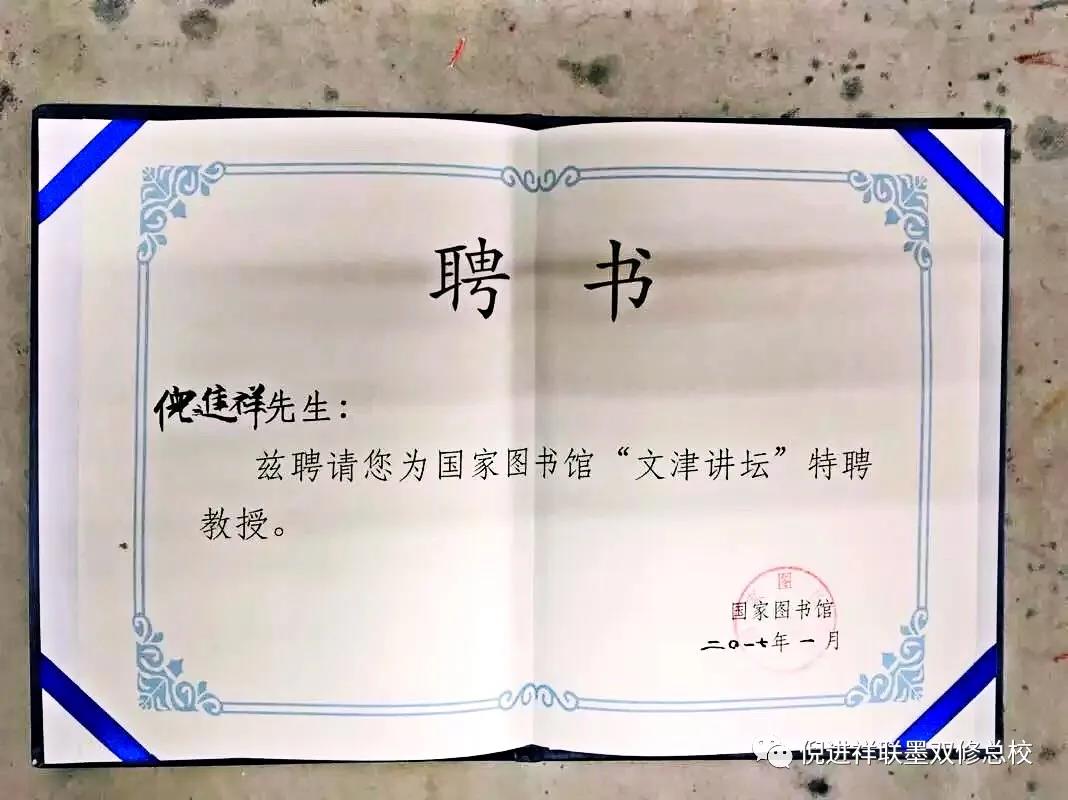 聘 书
倪进祥先生：
兹聘请您为国家图书馆“文津讲坛”特聘
教授。
图
国家图书馆
二〇一七年一月
倪进祥联墨双修总校